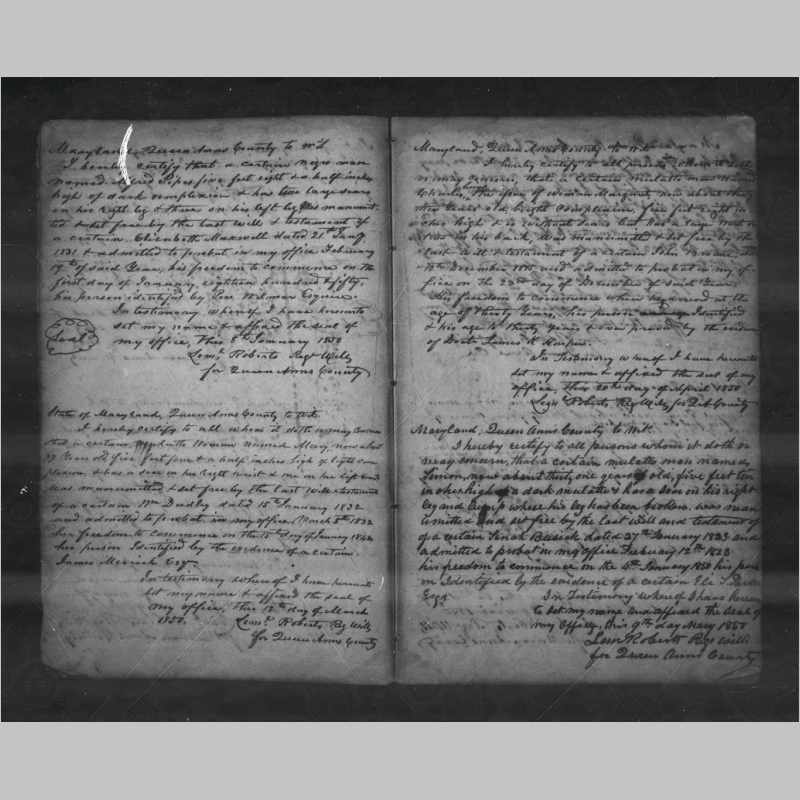 Maryland, Queen Anns County to wit
I hereby certify that a certain negro man
named Alfred Pipes five feet eight & a half inches
high of dark complexion & has two large scars
on his right leg & three on his left leg was manumit
ted & set free by the last will & testament of
a certain Elizabeth Maxwell dated 21st Jany
1831 & admitted to probat in my office February
of said Year, his freedom to commence on the
first day of January, eighteen hundred & fifty,
his person identifyd by Esquire.
In testimony whereof I have hereunto
set my name & affixed the seal of
my office, this 8th January 1850
Seal
Leml Roberts Regr Wills
for Queen Anns County
State of Maryland, Queen Anns County to wit
I hereby certify to all whom it doth or may concern
that a certain Mulatto Woman named Mary, now about
37 Years old five feet four & a half inches high of light com
plexion, & has a scar on her right wrist & one on her left hand
was manumitted & set free by the last will & testament
of a certain Wm Dudly dated 15th January 1832
and admitted to probat in my office March 1832
her freedom to commence on the day of January
her person Identified by the evidence of a certain
James Merrick Esqr
In testimony whereof I have hereunto
set my name & affixed the seal of
my office, this 12th day of March
1850. Leml Roberts, Reg Wills
for Queen Anns County
Maryland, Queen Anns County to Wit
I hereby certify to all persons whom it doth
or may concern, that a certain mulatto man named
now about thirty
Years old, bright complexion, five feet eight in
ches high & is without scars but has a large
on his back, was manumitted & set free by the
last will & testament of a certain John
December and admitted to probat in my of
fice on the 23rd day of December of said Year
his freedom to commence when he arrived at the
age of thirty Years, his person Identified
& his age is thirty Years & was proved by the eviden
of Doctr James
In Testimony whereof I have hereunto
set my name & affixed the seal of my
office, this 20th day of April 1850.
Leml Roberts, Reg Wills, for Q A County
Maryland, Queen Anns County to Wit.
I hereby certify to all persons whom it doth or
may concern, that a certain mulatto man named
Simon, now about thirty one years old, five feet ten
inches high a dark mulatto & has a scar on his right
leg and limps where his leg has been broken, was man
umitted and set free by the Last Will and testament of
of a certain Bessick dated 27th January 1823 and
admitted to probat in my office February 12th 1823
his freedom to commence on the January 1850 his pers
on Identified by the evidence of a certain
Esqr In Testimony whereof I have hereun
to set my name and affixed the Seal of
my Office, this 9th day May 1850
Lem Roberts Reg Wills
for Queen Anns County